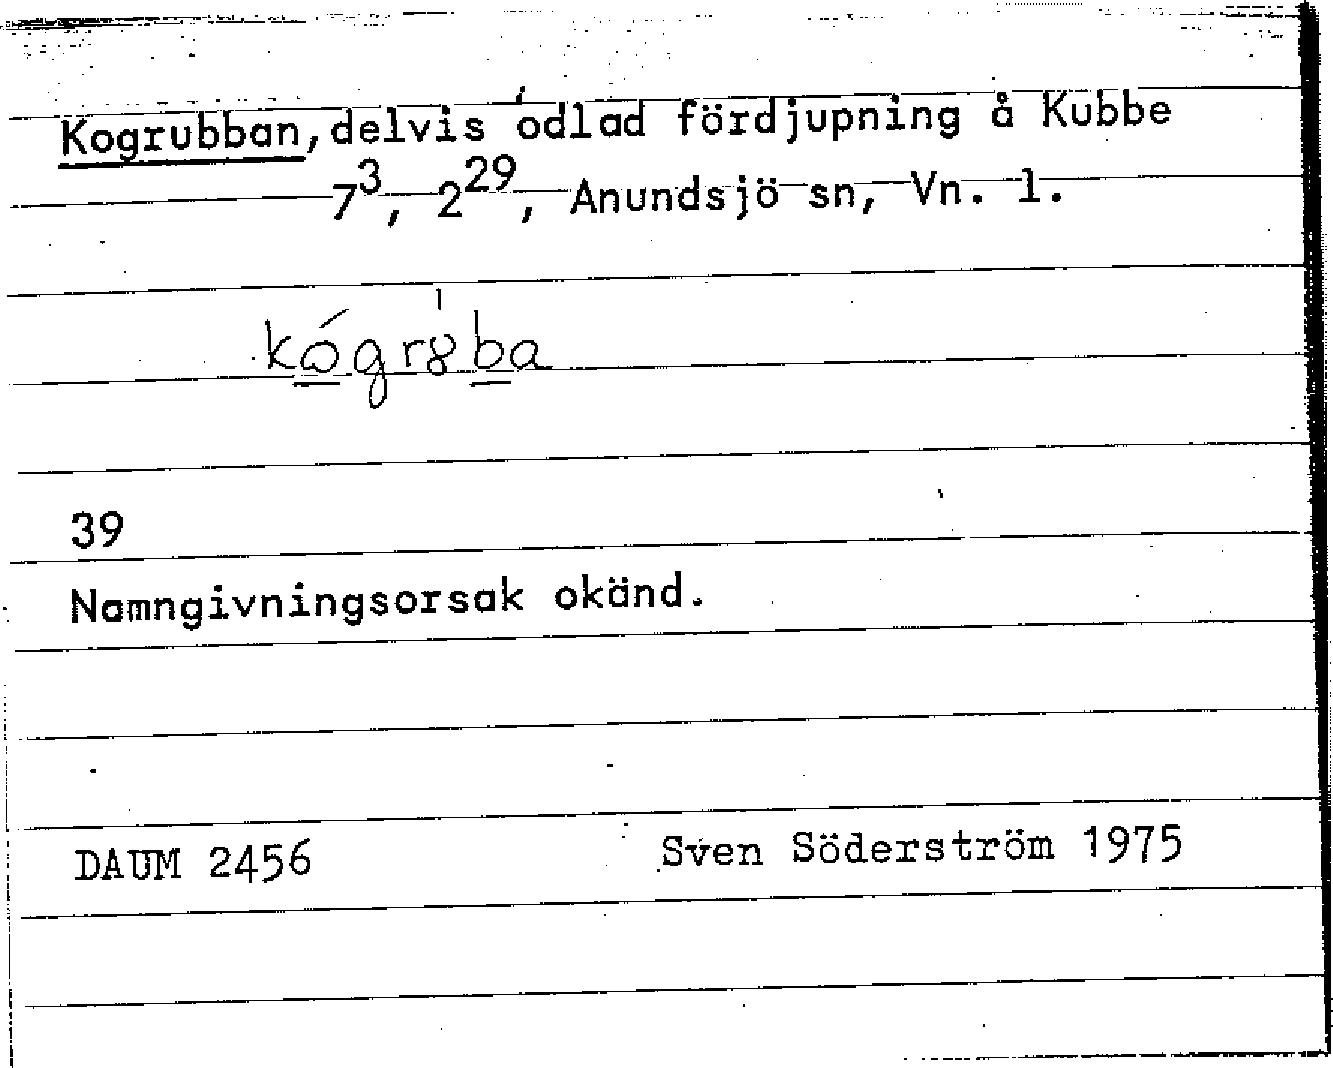 Kogrubban, delvis odlad fördjupning å Kubbe
7³, 2²⁹, Anundsjö sn, Vn. l.
39
Namngivningsorsak okänd.
DAUM 2456 Sven Söderström 1975